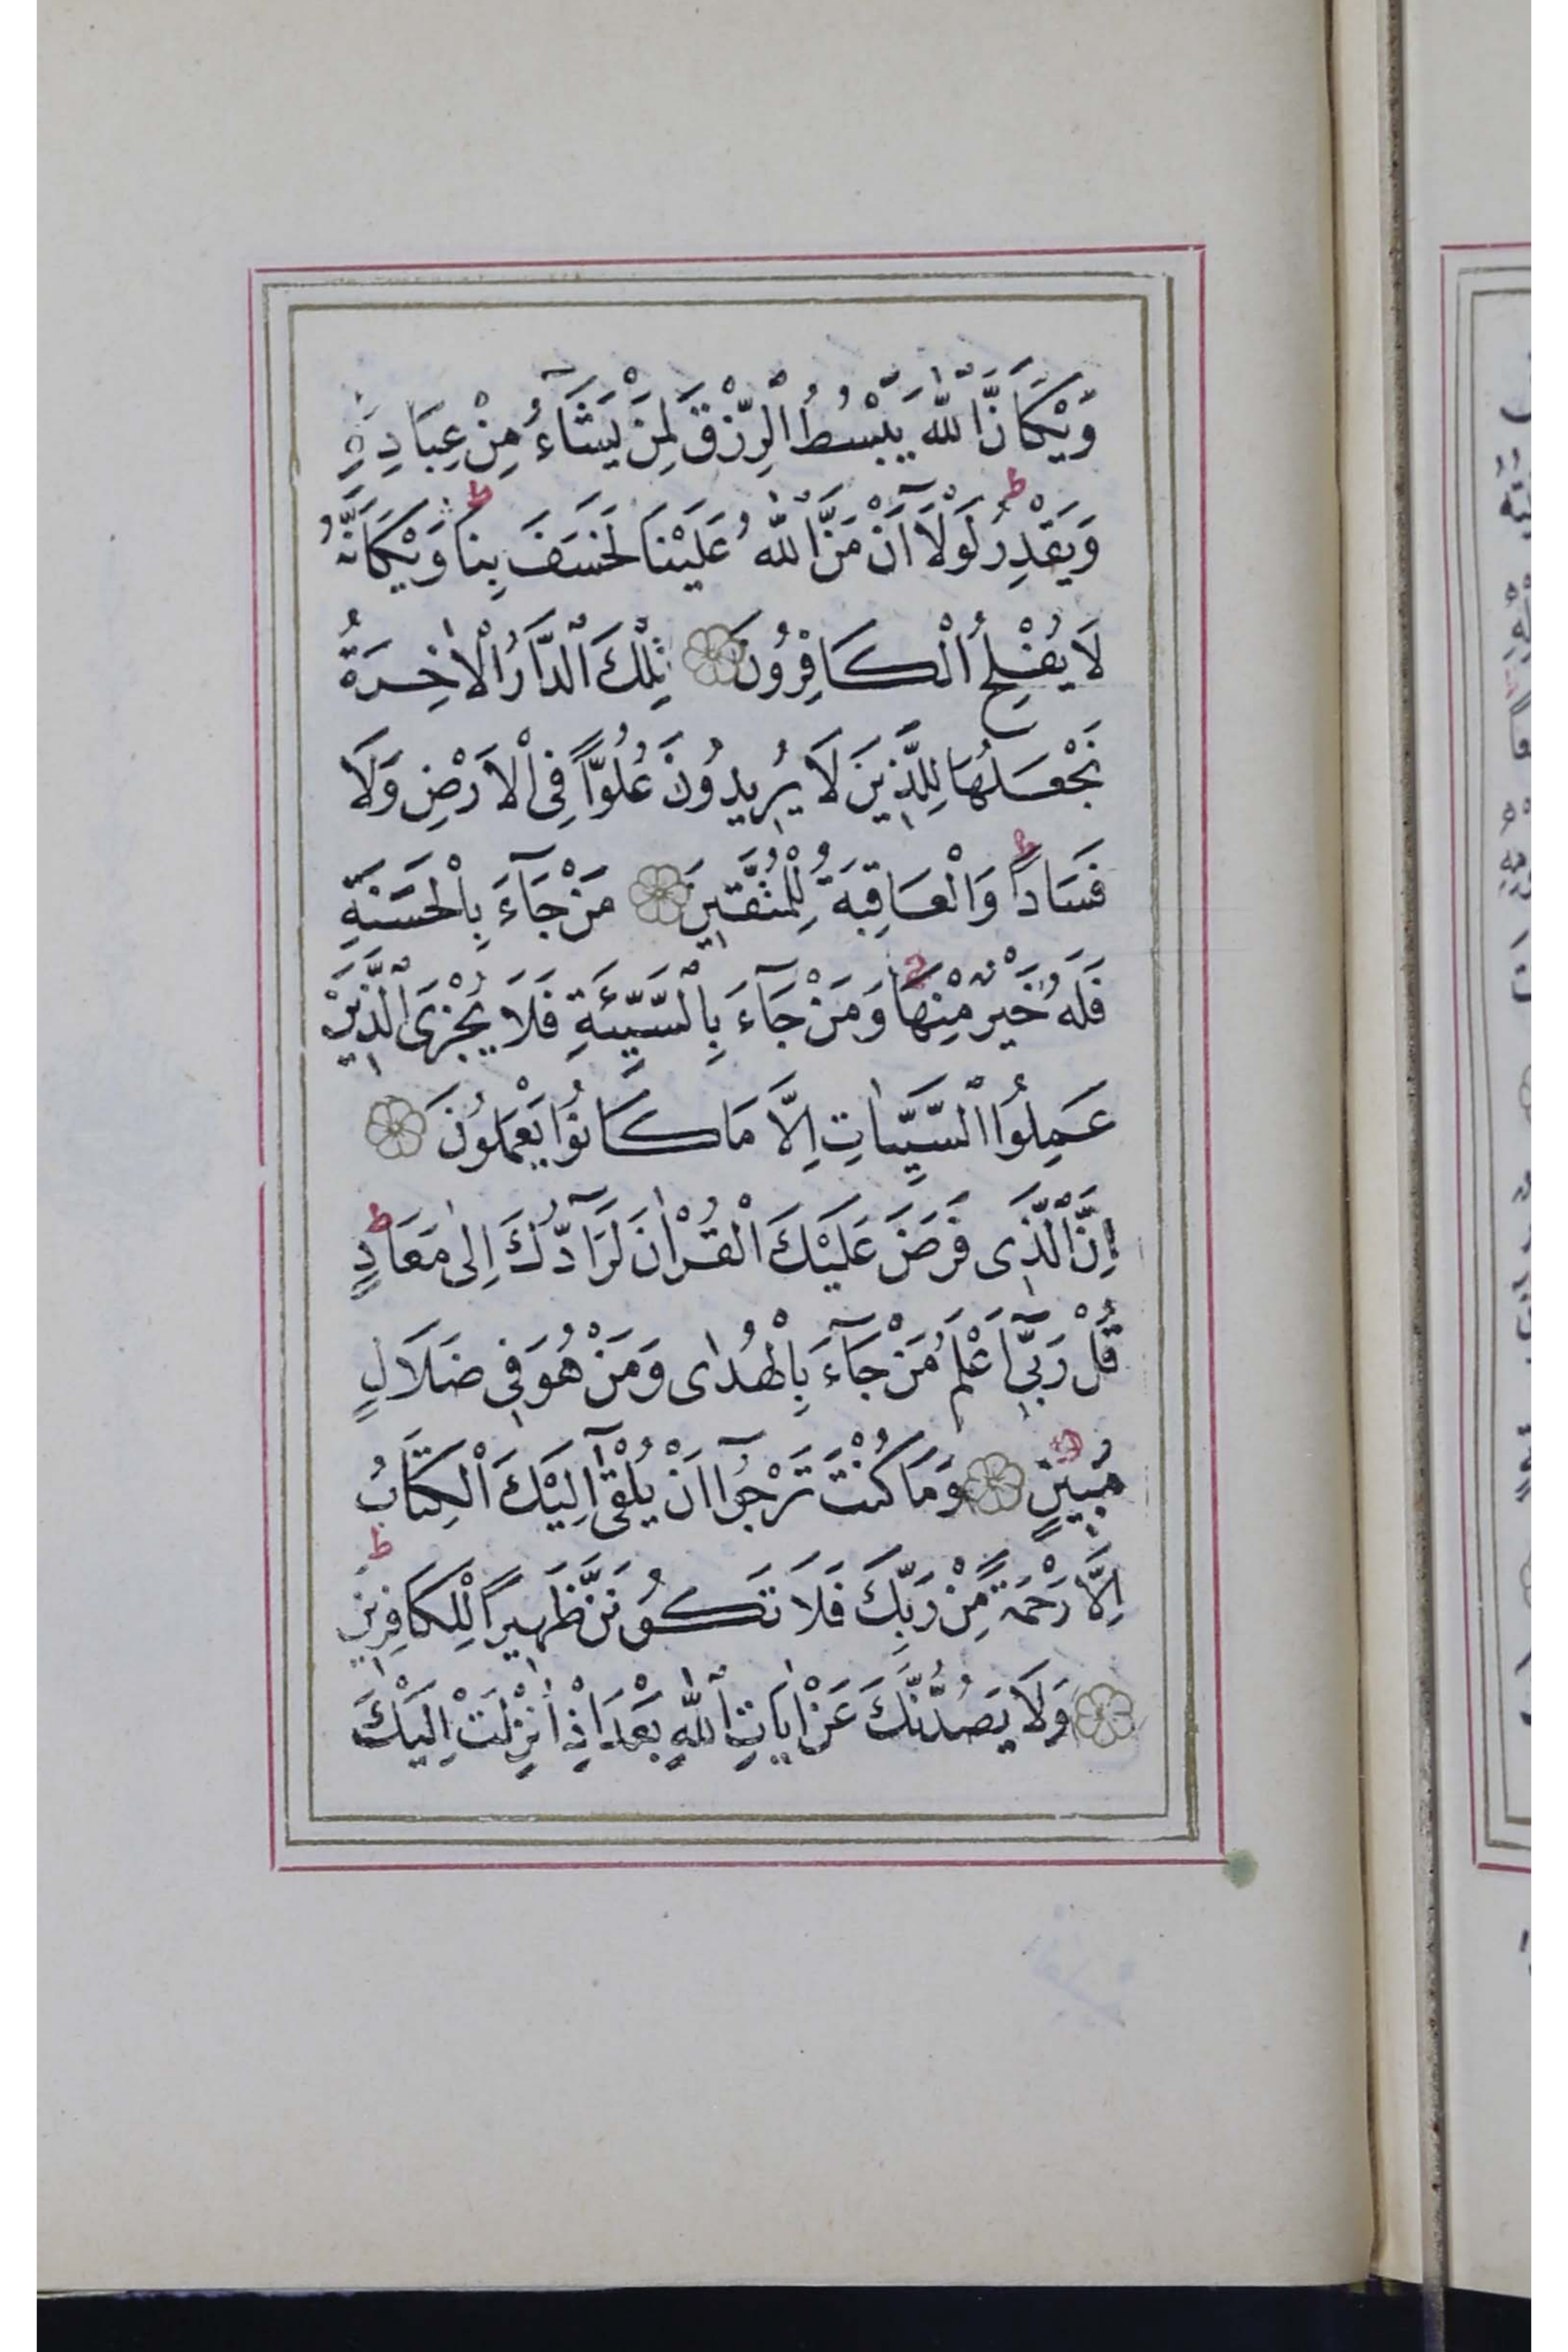 وَيْكَاَنَّ اللّٰهَ يَبْسُطُ الرِّزْقَ لِمَنْ يَشَآءُ مِنْ عِبَادِهِ
وَيَقْدِرُ ط لَوْلَآ اَنْ مَنَّ اللّٰهُ عَلَيْنَا لَخَسَفَ بِنَا ط وَيْكَاَنَّهُ
لَا يُفْلِحُ الْكَافِرُونَ تِلْكَ الدَّارُ الْاٰخِرَةُ
نَجْعَلُهَا لِلَّذِينَ لَا يُرِيدُونَ عُلُوًّا فِى الْاَرْضِ وَلَا
فَسَادًا ط وَالْعَاقِبَةُ لِلْمُتَّقِينَ مَنْ جَآءَ بِالْحَسَنَةِ
فَلَهُ خَيْرٌ مِنْهَا ج وَمَنْ جَآءَ بِالسَّيِّئَةِ فَلَا يُجْزَى الَّذِينَ
عَمِلُوا السَّيِّاٰتِ اِلَّا مَا كَانُوا يَعْمَلُونَ
اِنَّ الَّذِى فَرَضَ عَلَيْكَ الْقُرْاٰنَ لَرَآدُّكَ اِلٰى مَعَادٍ ط
قُلْ رَبِّىٓ اَعْلَمُ مَنْ جَآءَ بِالْهُدٰى وَمَنْ هُوَ فِى ضَلَالٍ
مُبِينٍ وَمَا كُنْتَ تَرْجُوٓا اَنْ يُلْقٰٓى اِلَيْكَ الْكِتَابُ
اِلَّا رَحْمَةً مِنْ رَبِّكَ فَلَا تَكُونَنَّ ظَهِيرًا لِلْكَافِرِينَ ط
وَلَا يَصُدُّنَّكَ عَنْ اٰيَاتِ اللّٰهِ بَعْدَ اِذْ اُنْزِلَتْ اِلَيْكَ